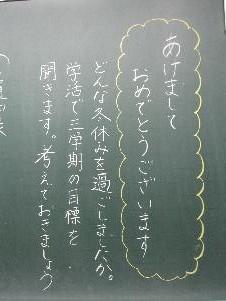 あけまして
おめでとうございます
どんな冬休みを過ごしましたか。
学活で三学期の目標を
聞きます。考えておきましょう